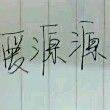 暖源源